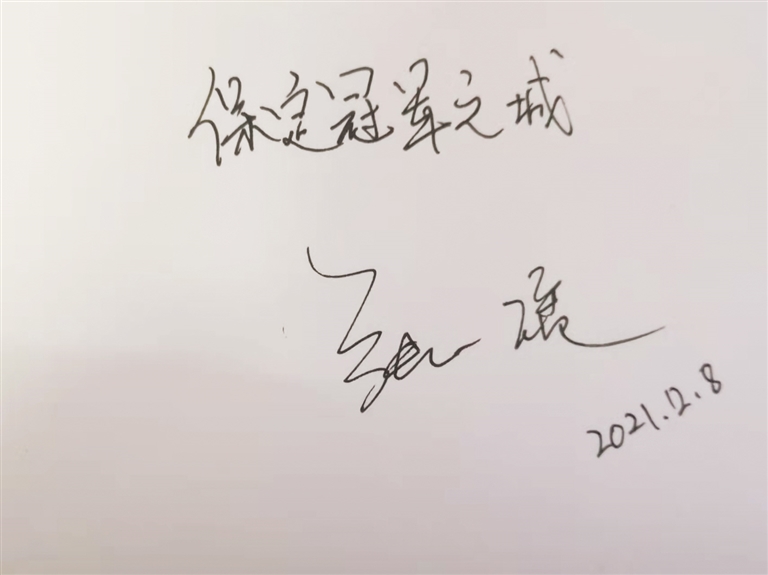 保定冠军之城
2021.12.8